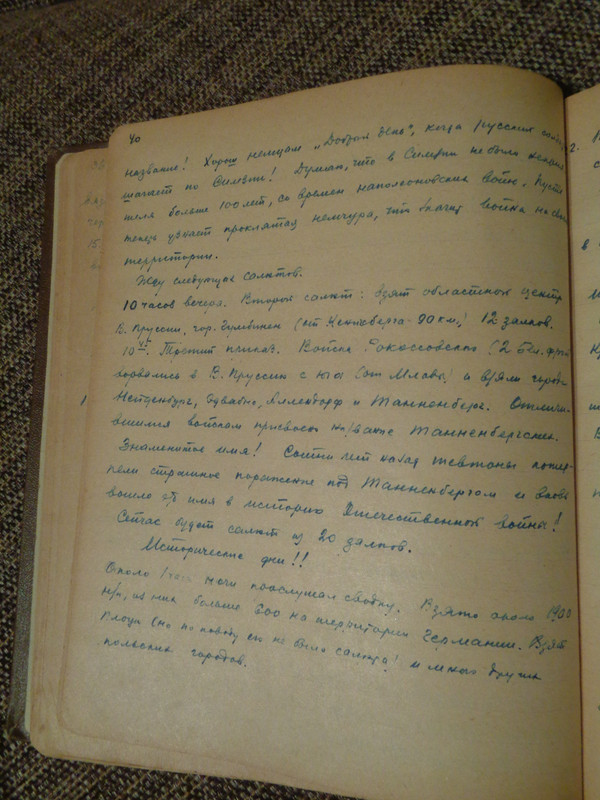 40
название! Хорош немецкий „Добрый день“, когда русский солдат
шагает по Силезии! Думаю, что в Силезии не было неприя-
теля больше 100 лет, со времен наполеоновских войн. Пусть
теперь узнает проклятая немчура, что значит война на своей
территории.
Жду следующих салютов.
10 часов вечера. Второй салют: взят областной центр
В. Пруссии, гор. Гумбинен (от Кенигсберга - 90 км.) 12 залпов.
10 45. Третий приказ. Войска Рокоссовского (2 Бел. фр.)
ворвались в В. Пруссию с юга (от Млавы) и взяли города
Нейденбург, Едвабно, Аллендорф и Танненберг. Отличи-
вшимся войскам присвоено название Танненбергских.
Знаменитое имя! Сотни лет назад тевтоны потер-
пели страшное поражение под Танненбергом и вновь
вошло это имя в историю Отечественной войны!
Сейчас будет салют из 20 залпов.
Исторические дни!!
Около 1 часа ночи послушал сводку. Взято около 1900
н/п, из них больше 600 на территории Германии. Взят
Плоцк (но по поводу его не было салюта) и много других
польских городов.